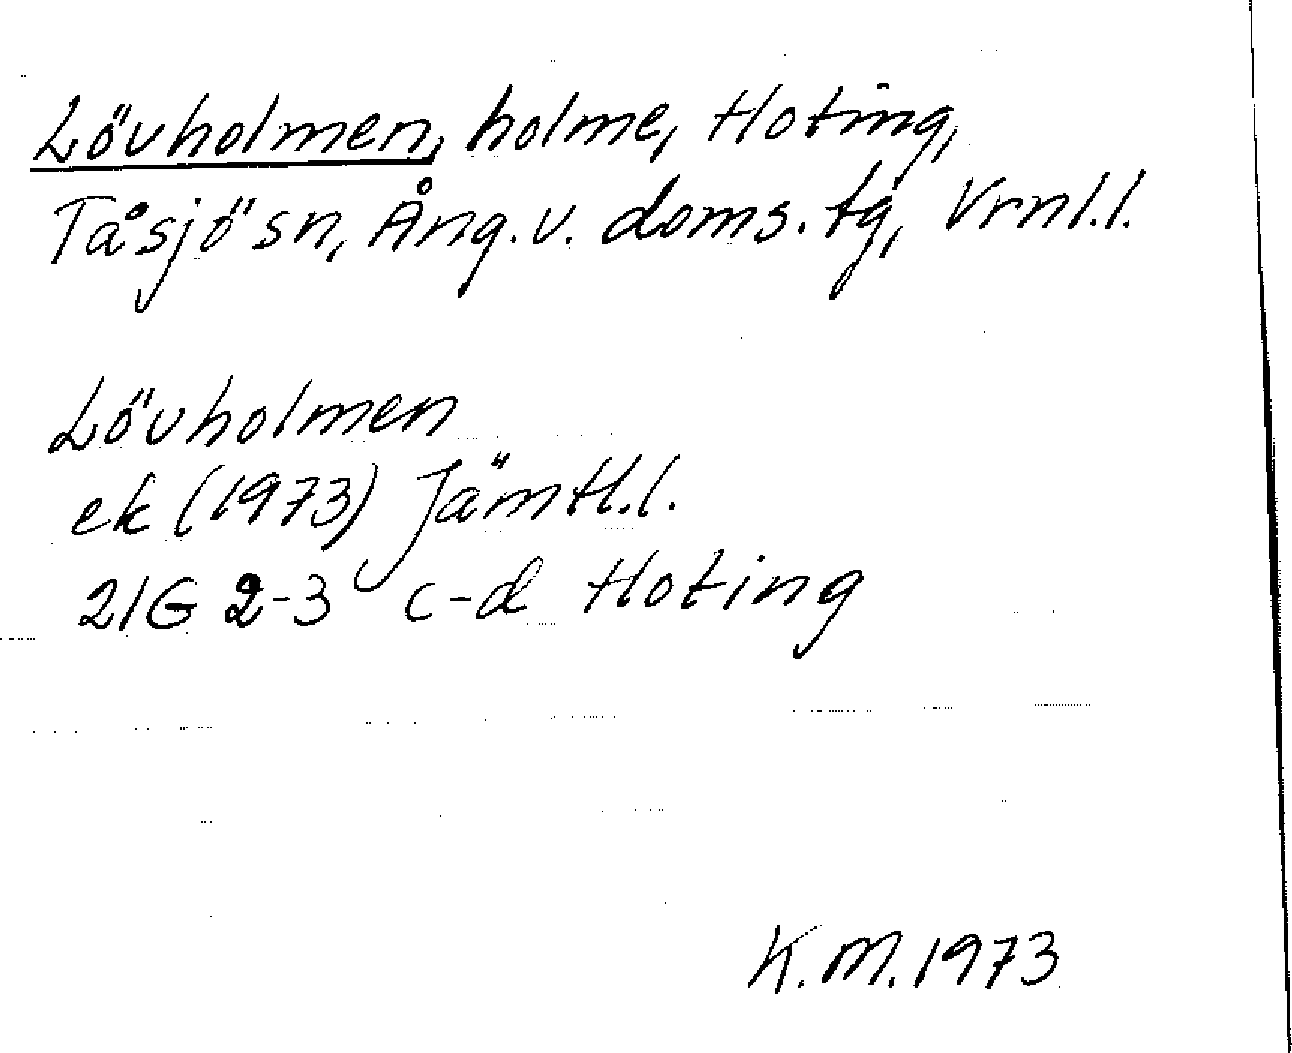 Lövholmen, holme, Hoting,
Tåsjö sn, Ång. v. doms. tg, Vrnl. l.
Lövholmen
ek (1973) Jämtl. l.
21G 2-3 c-d Hoting
K. M. 1973